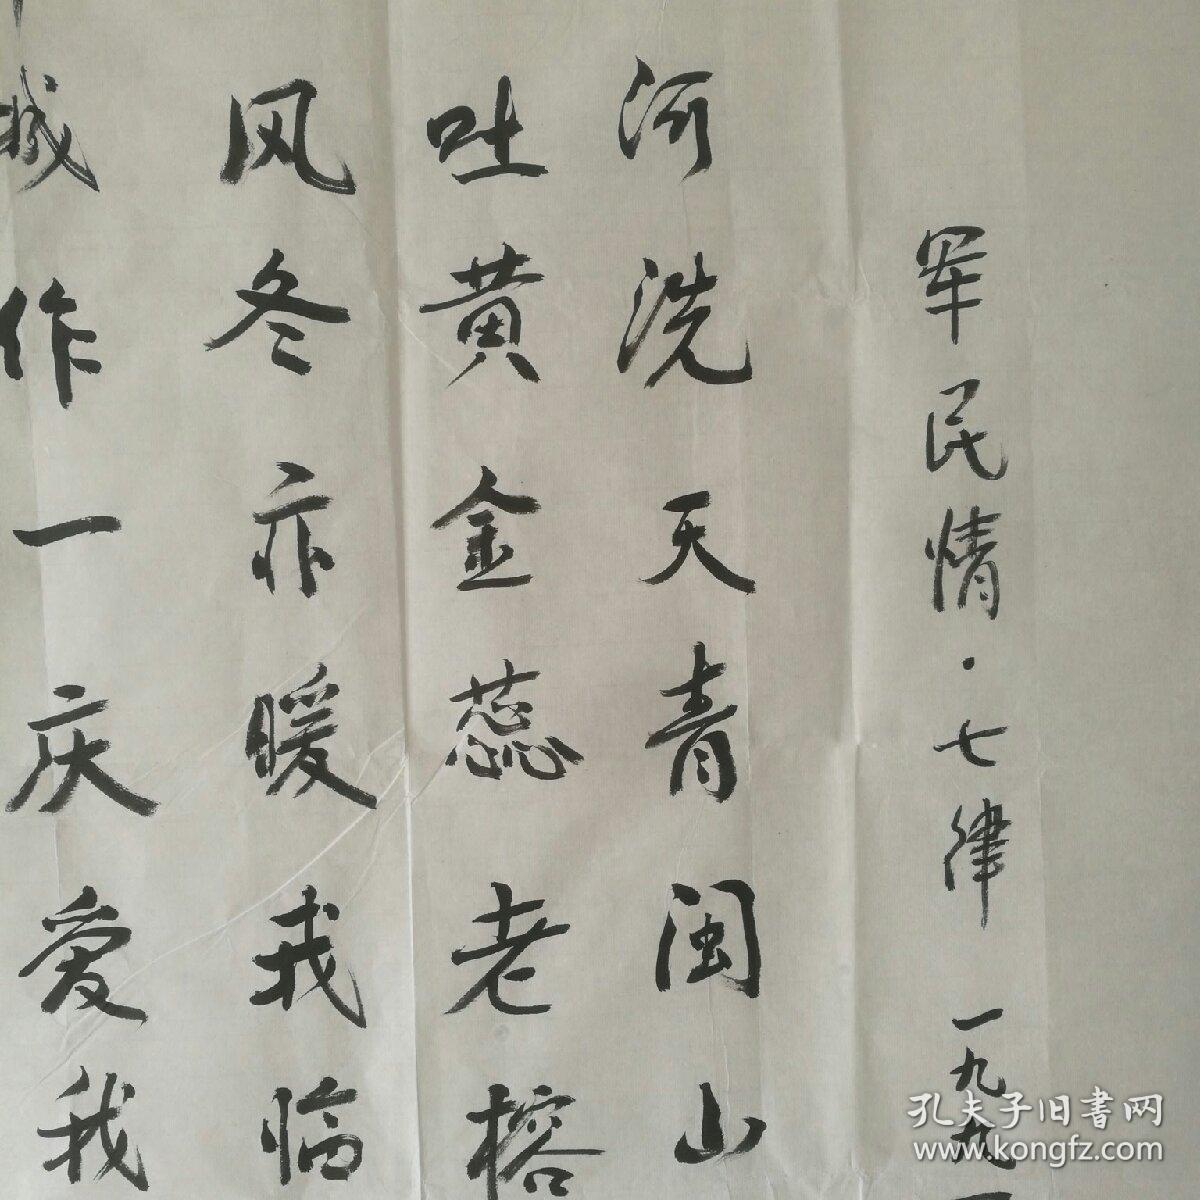 军民情·七律 一九九一
河洗天青闽山
吐黄金蕊老榕
风冬亦暖我临
城作一庆爱我
孔夫子旧書网
www.kongfz.com